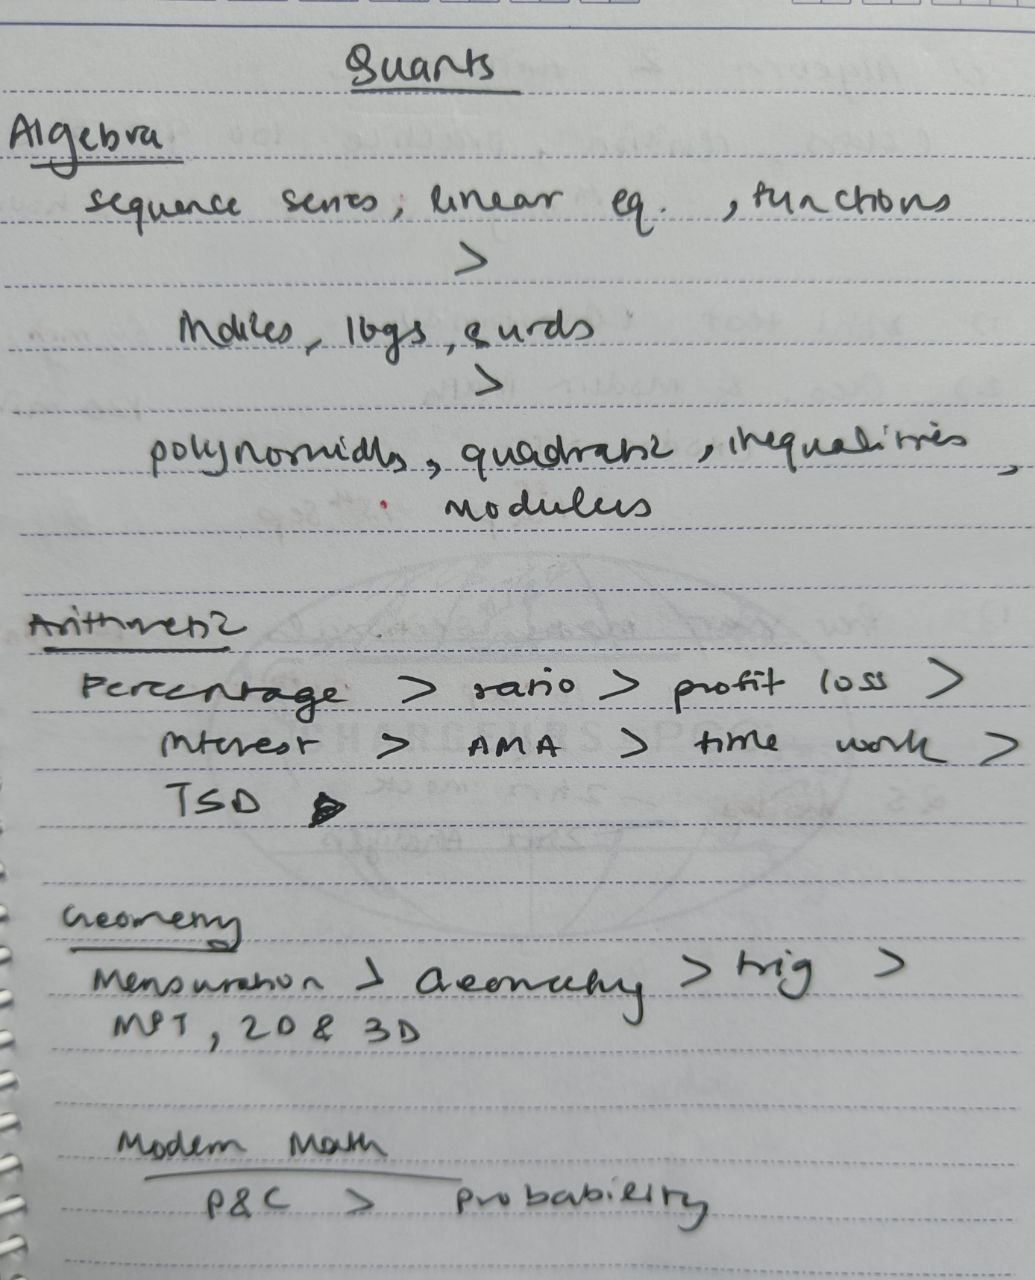 Quants
Algebra
sequence series, linear eq. , functions
>
Indices, logs, surds
>
polynomials, quadratic, inequalities,
modulus
Arithmetic
Percentage > ratio > profit loss >
Interest > AMA > time work >
TSD
Geometry
Mensuration > Geometry > trig >
MPT, 2D & 3D
Modern Math
P&C > probability